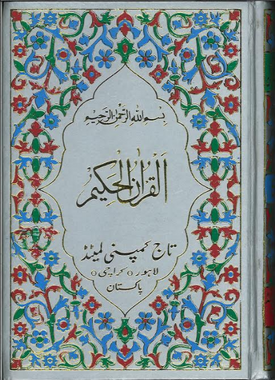 بسم الله الرحمن الرحیم
القرآن الحکیم
تاج کمپنی لمیٹڈ
لاہور ○ کراچی ○
پاکستان